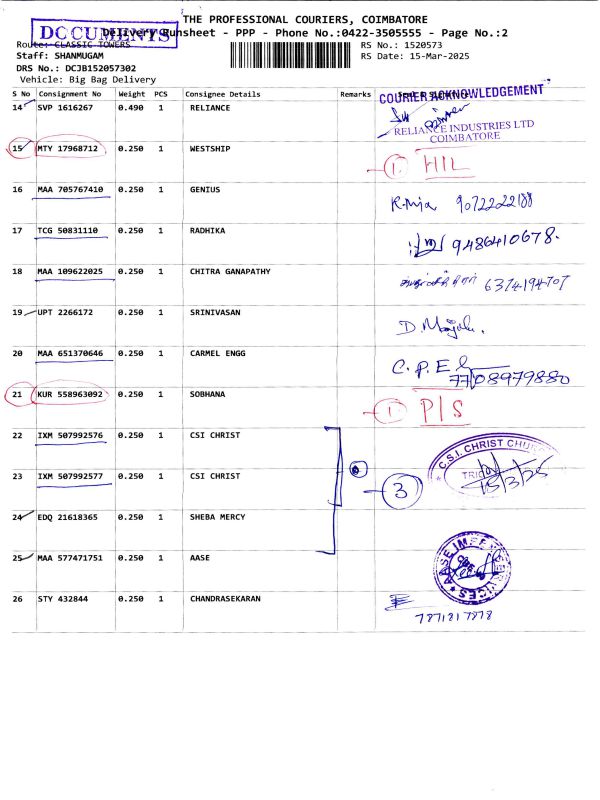 THE PROFESSIONAL COURIERS, COIMBATORE
DOCUMENTS
Delivery Runsheet - PPP - Phone No.:0422-3505555 - Page No.:2
Route: CLASSIC TOWERS
RS No.: 1520573
Staff: SHANMUGAM
RS Date: 15-Mar-2025
DRS No.: DCJB152057302
Vehicle: Big Bag Delivery
S No Consignment No Weight PCS Consignee Details Remarks
COURIER ACKNOWLEDGEMENT
14 SVP 1616267 0.490 1 RELIANCE
RELIANCE INDUSTRIES LTD
COIMBATORE
15 MTY 17968712 0.250 1 WESTSHIP
1 HIL
16 MAA 705767410 0.250 1 GENIUS
9072222188
17 TCG 50831110 0.250 1 RADHIKA
9486410678.
18 MAA 109622025 0.250 1 CHITRA GANAPATHY
6374194707
19 UPT 2266172 0.250 1 SRINIVASAN
20 MAA 651370646 0.250 1 CARMEL ENGG
C. P. E
7708979880
21 KUR 558963092 0.250 1 SOBHANA
1 P/S
22 IXM 507992576 0.250 1 CSI CHRIST
C.S.I. CHRIST CHURCH
23 IXM 507992577 0.250 1 CSI CHRIST
3
15/3/25
24 EDQ 21618365 0.250 1 SHEBA MERCY
25 MAA 577471751 0.250 1 AASE
26 STY 432844 0.250 1 CHANDRASEKARAN
7871817878